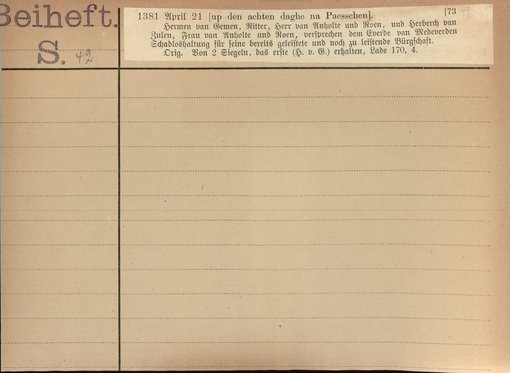 Beiheft.
S. 42
1381 April 21 [up den achten daghe na Paesschen]. [73
Hermen van Gemen, Ritter, Herr van Anholte und Roen, und Herberch van
Zulen, Frau van Anholte und Roen, versprechen dem Everde van Medeverden
Schadloshaltung für seine bereits geleistete und noch zu leistende Bürgschaft.
Orig. Von 2 Siegeln, das erste (H. v. G.) erhalten, Lade 170, 4.